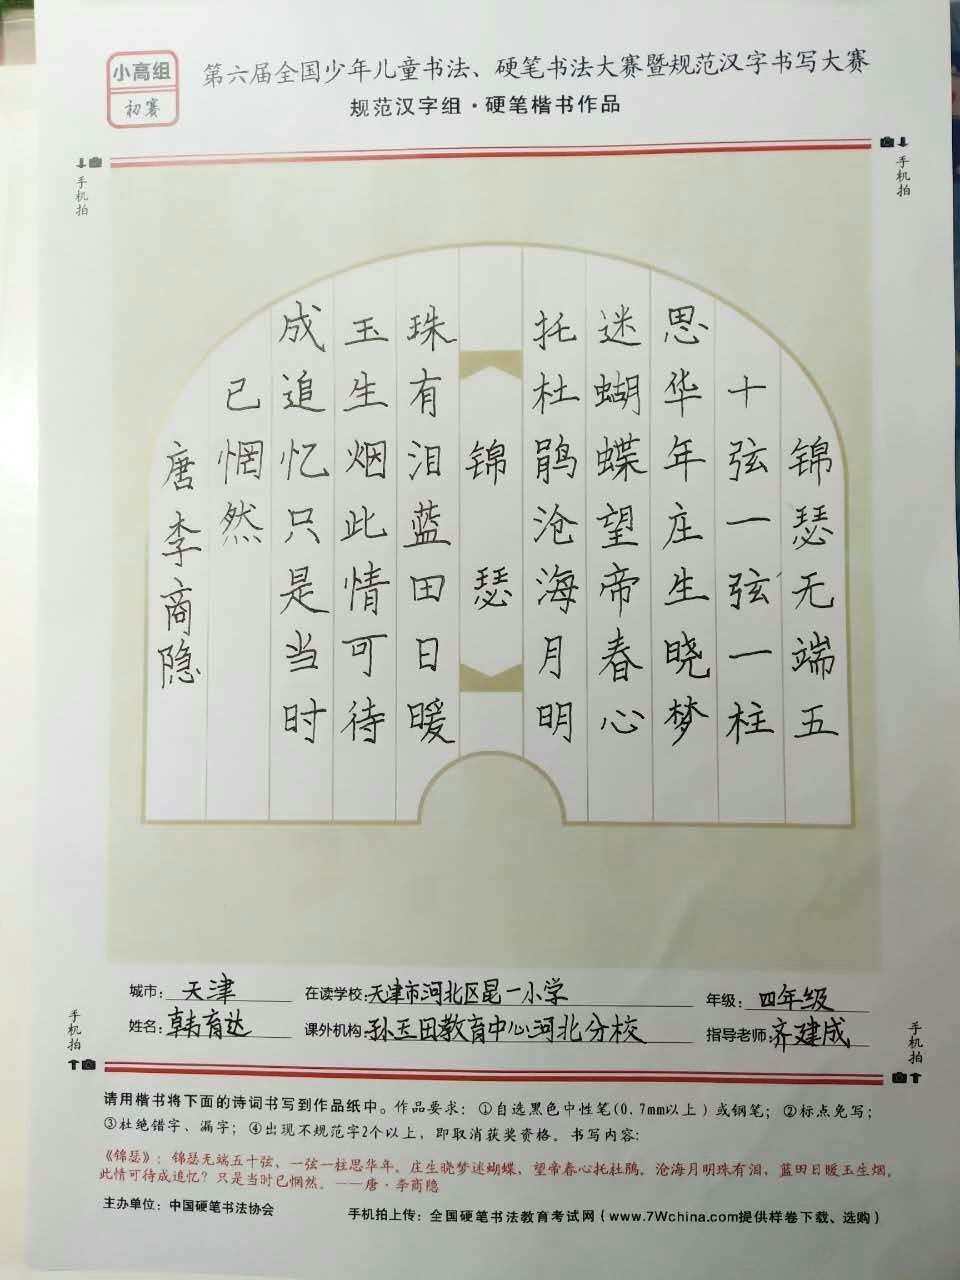 小高组
初赛
第六届全国少年儿童书法、硬笔书法大赛暨规范汉字书写大赛
规范汉字组·硬笔楷书作品
手机拍
手机拍
锦瑟无端五
十弦一弦一柱
思华年庄生晓梦
迷蝴蝶望帝春心
托杜鹃沧海月明
锦瑟
珠有泪蓝田日暖
玉生烟此情可待
成追忆只是当时
已惘然
唐李商隐
城市: 天津 在读学校: 天津市河北区昆一小学 年级: 四年级
姓名: 韩育达 课外机构: 孙玉田教育中心河北分校 指导老师: 齐建成
手机拍
手机拍
请用楷书将下面的诗词书写到作品纸中。作品要求：①自选黑色中性笔(0.7mm以上)或钢笔；②标点免写；
③杜绝错字、漏字；④出现不规范字2个以上，即取消获奖资格。书写内容：
《锦瑟》：锦瑟无端五十弦、一弦一柱思华年。庄生晓梦迷蝴蝶、望帝春心托杜鹃。沧海月明珠有泪，蓝田日暖玉生烟。
此情可待成追忆？只是当时已惘然。——唐·李商隐
主办单位：中国硬笔书法协会 手机拍上传：全国硬笔书法教育考试网（www.7Wchina.com提供样卷下载、选购）